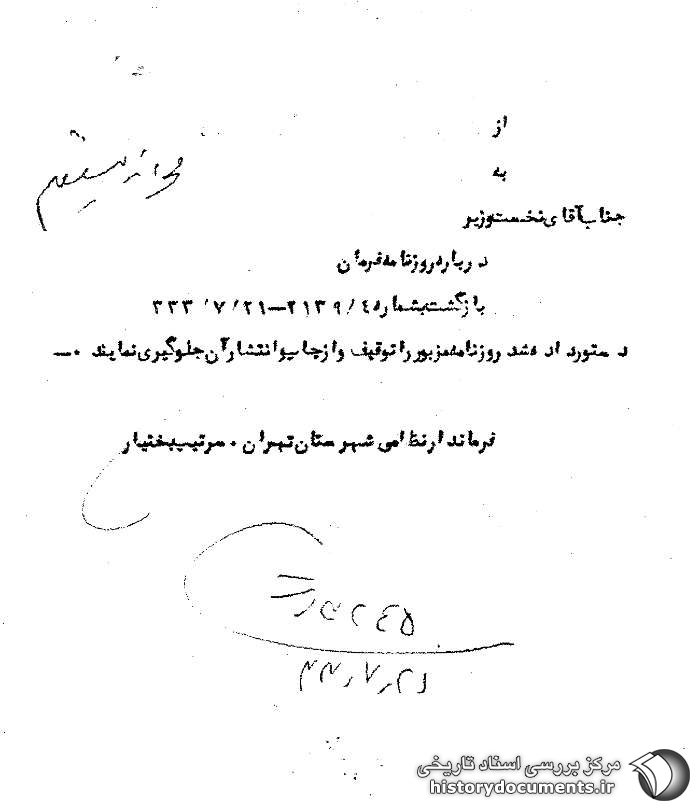 از
به
محرمانه مستقیم
جناب آقای نخست وزیر
درباره روزنامه فرمان
بازگشت بشماره ٤/ ٢١٣٩ــ٢١/ ٧/ ٣٣٣
دستور داده شد روزنامه مزبور را توقیف و از چاپ و انتشار آن جلوگیری نمایند .ــ
فرماندار نظامی شهرستان تهران . سرتیپ بختیار
٣٣٫٧٫٢١
مرکز بررسی اسناد تاریخی
historydocuments.ir